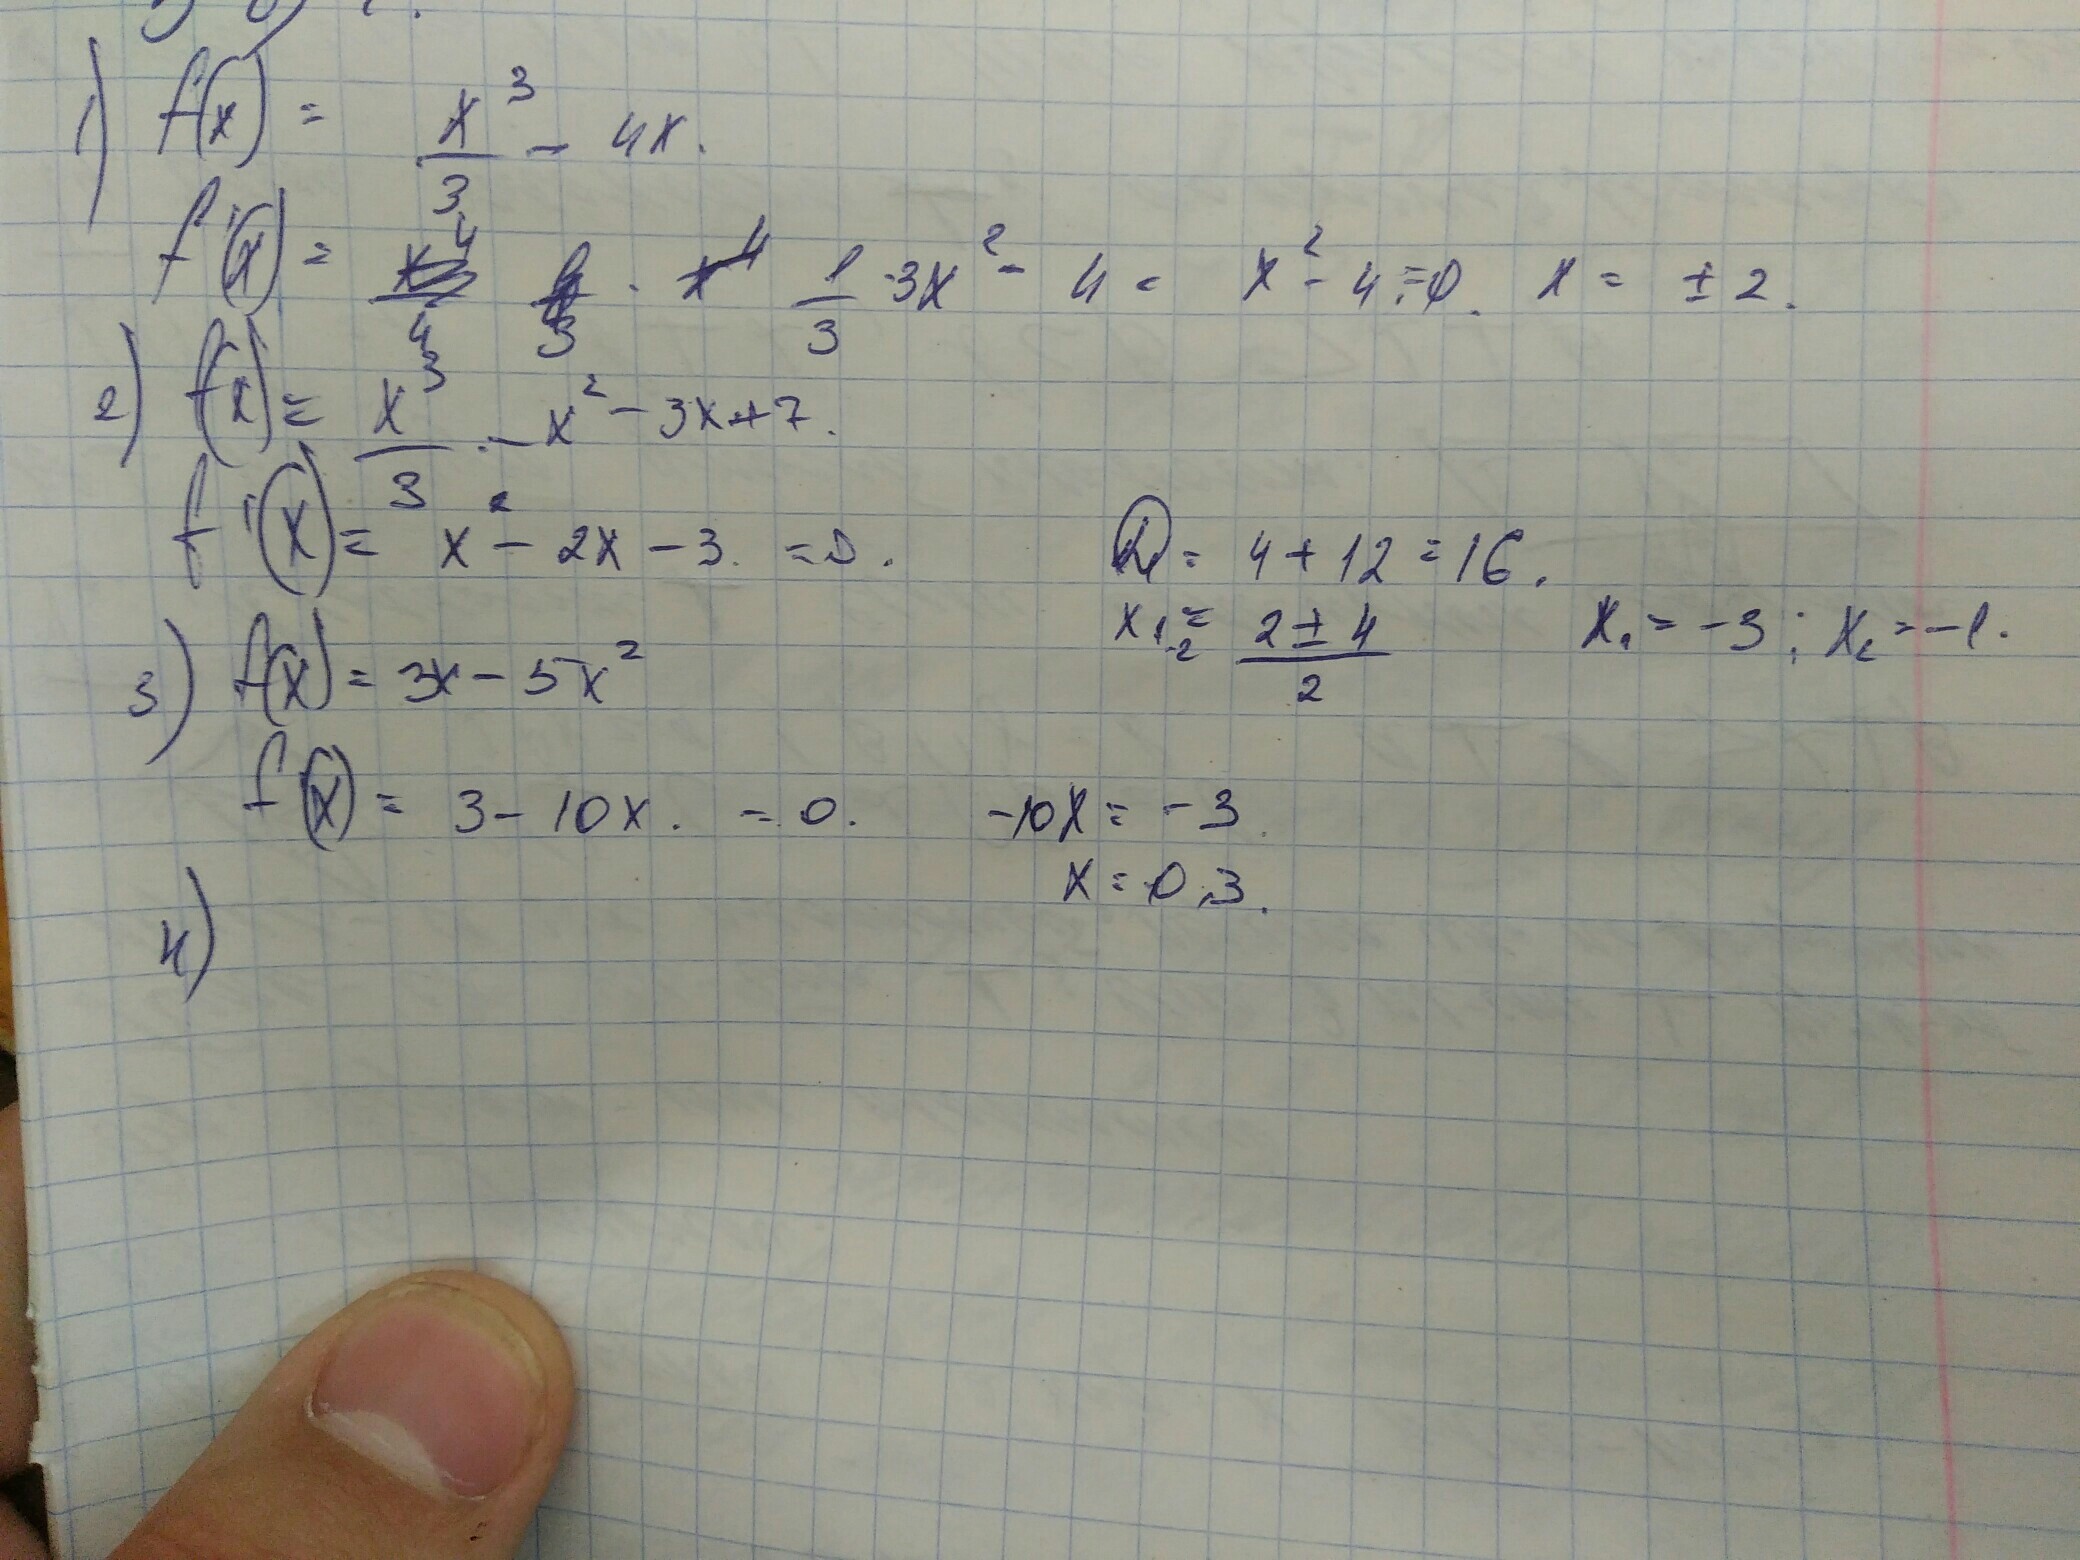 1) f(x) = x³/3 - 4x.
f'(x) = 1/3 · 3x² - 4 = x² - 4 = 0. x = ± 2.
2) f(x) = x³/3 - x² - 3x + 7.
f'(x) = x² - 2x - 3. = 0. D = 4 + 12 = 16.
x₁,₂ = (2 ± 4)/2 x₁ = -3; x₂ = -1.
3) f(x) = 3x - 5x²
f'(x) = 3 - 10x. = 0. -10x = -3.
x = 0,3.
4)